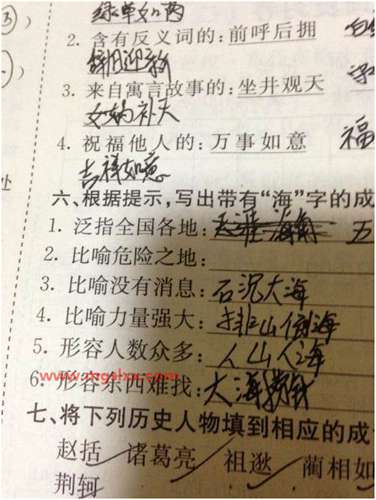 绿草如茵
2. 含有反义词的: 前呼后拥
辞旧迎新
3. 来自寓言故事的: 坐井观天
女娲补天
4. 祝福他人的: 万事如意 福
吉祥如意
处
六、根据提示,写出带有“海”字的成
1. 泛指全国各地: 五
2. 比喻危险之地:
3. 比喻没有消息: 石沉大海
4. 比喻力量强大: 排山倒海
5. 形容人数众多: 人山人海
6. 形容东西难找: 大海捞针
七、将下列历史人物填到相应的成
赵括 诸葛亮 祖逖 蔺相如
荆轲